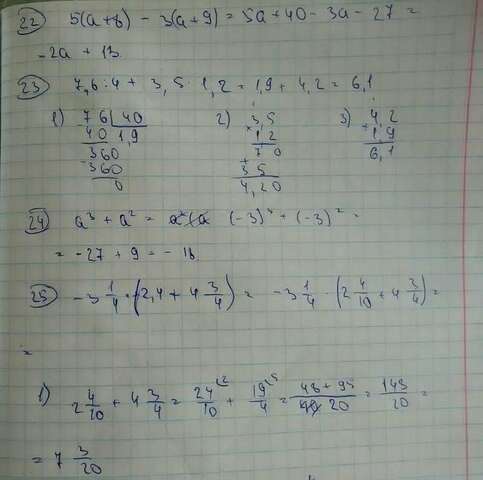 22) 5(a+8) - 3(a+9) = 5a+40-3a-27 =
-2a + 13
23) 7,6:4 + 3,5·1,2 = 1,9 + 4,2 = 6,1
1) 76 | 40  2) 3,5  3) 4,2
40 | 1,9  × 1 2  + 1,9
360  7 0  6,1
-360  + 3 5
0  4,20
24) a³ + a² = (-3)³ + (-3)² =
= -27 + 9 = -18
25) -3 1/4 · (2,4 + 4 3/4) = -3 1/4 · (2 4/10 + 4 3/4) =
=
1) 2 4/10 + 4 3/4 = 24/10 + 19/4 = 48+95/20 = 143/20 =
= 7 3/20